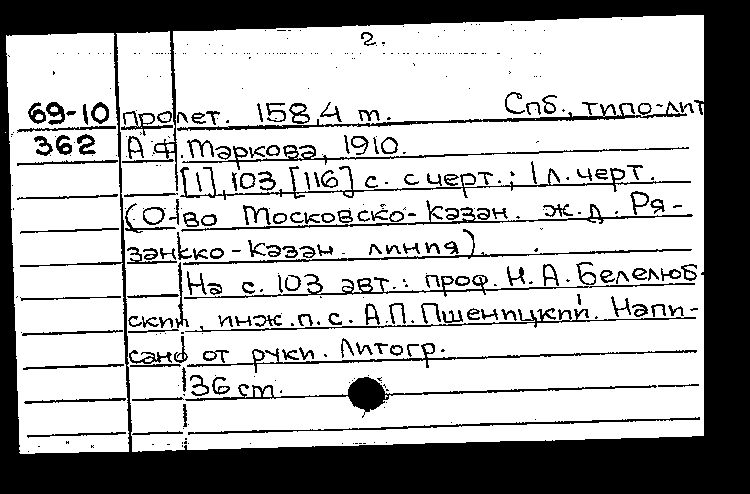 2.
69-10 пролет. 158,4 т. Спб., типо-лит
362 А.Ф.Маркова, 1910.
[1], 103, [116] с. с черт.; 1 л. черт.
(О-во Московско-Казан. ж.д. Ря-
занско-Казан. линия).
На с. 103 авт.: проф. Н.А. Белелюб-
ский, инж.п.с. А.П.Пшеницкий. Напи-
сано от руки. Литогр.
36 см.